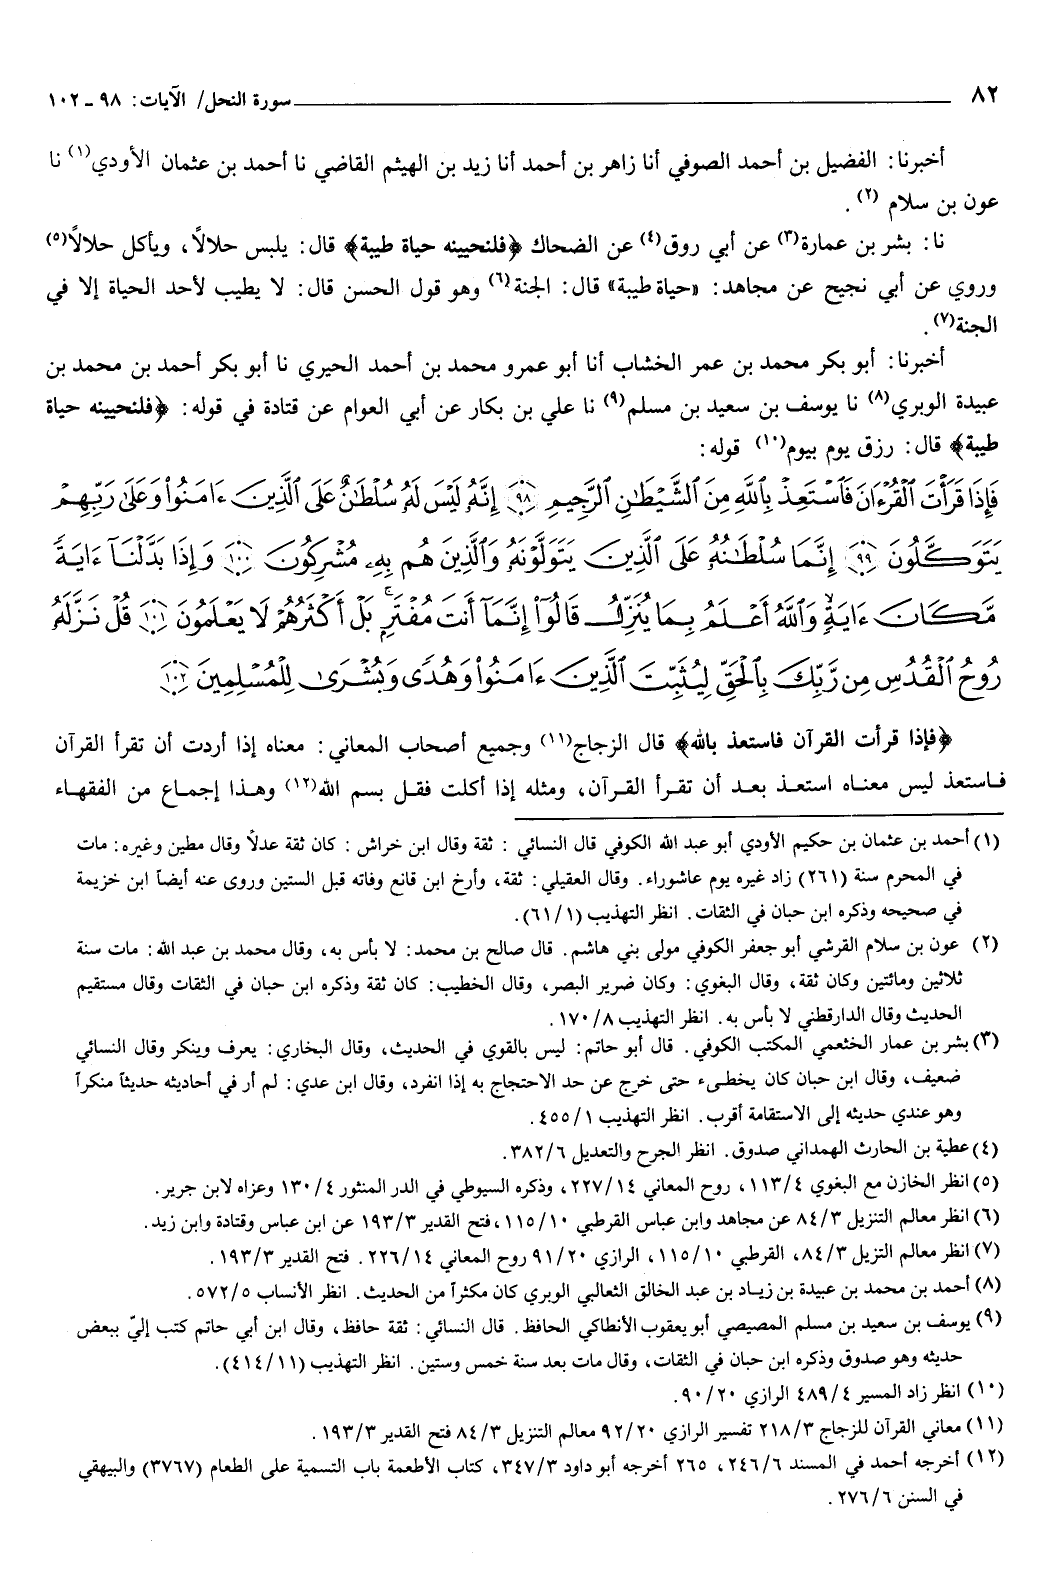 ٨٢ سورة النحل/ الآيات: ٩٨ - ١٠٢
أخبرنا: الفضيل بن أحمد الصوفي أنا زاهر بن أحمد أنا زيد بن الهيثم القاضي نا أحمد بن عثمان الأودي(١) نا
عون بن سلام (٢).
نا: بشر بن عمارة(٣) عن أبي روق(٤) عن الضحاك ﴿فلنحيينه حياة طيبة﴾ قال: يلبس حلالاً، ويأكل حلالاً(٥)
وروي عن أبي نجيح عن مجاهد: «حياة طيبة» قال: الجنة(٦) وهو قول الحسن قال: لا يطيب لأحد الحياة إلا في
الجنة(٧).
أخبرنا: أبو بكر محمد بن عمر الخشاب أنا أبو عمرو محمد بن أحمد الحيري نا أبو بكر أحمد بن محمد بن
عبيدة الوبري(٨) نا يوسف بن سعيد بن مسلم(٩) نا علي بن بكار عن أبي العوام عن قتادة في قوله: ﴿فلنحيينه حياة
طيبة﴾ قال: رزق يوم بيوم(١٠) قوله:
فَإِذَا قَرَأْتَ ٱلْقُرْءَانَ فَٱسْتَعِذْ بِٱللَّهِ مِنَ ٱلشَّيْطَٰنِ ٱلرَّجِيمِ ﴿٩٨﴾ إِنَّهُۥ لَيْسَ لَهُۥ سُلْطَٰنٌ عَلَى ٱلَّذِينَ ءَامَنُوا۟ وَعَلَىٰ رَبِّهِمْ
يَتَوَكَّلُونَ ﴿٩٩﴾ إِنَّمَا سُلْطَٰنُهُۥ عَلَى ٱلَّذِينَ يَتَوَلَّوْنَهُۥ وَٱلَّذِينَ هُم بِهِۦ مُشْرِكُونَ ﴿١٠٠﴾ وَإِذَا بَدَّلْنَآ ءَايَةً
مَّكَانَ ءَايَةٍ ۙ وَٱللَّهُ أَعْلَمُ بِمَا يُنَزِّلُ قَالُوٓا۟ إِنَّمَآ أَنتَ مُفْتَرٍۭ ۚ بَلْ أَكْثَرُهُمْ لَا يَعْلَمُونَ ﴿١٠١﴾ قُلْ نَزَّلَهُۥ
رُوحُ ٱلْقُدُسِ مِن رَّبِّكَ بِٱلْحَقِّ لِيُثَبِّتَ ٱلَّذِينَ ءَامَنُوا۟ وَهُدًى وَبُشْرَىٰ لِلْمُسْلِمِينَ ﴿١٠٢﴾
﴿فإذا قرأت القرآن فاستعذ بالله﴾ قال الزجاج(١١) وجميع أصحاب المعاني: معناه إذا أردت أن تقرأ القرآن
فاستعذ ليس معناه استعذ بعد أن تقرأ القرآن، ومثله إذا أكلت فقل بسم الله(١٢) وهذا إجماع من الفقهاء
(١) أحمد بن عثمان بن حكيم الأودي أبو عبد الله الكوفي قال النسائي: ثقة وقال ابن خراش: كان ثقة عدلاً وقال مطين وغيره: مات
في المحرم سنة (٢٦١) زاد غيره يوم عاشوراء. وقال العقيلي: ثقة، وأرخ ابن قانع وفاته قبل الستين وروى عنه أيضاً ابن خزيمة
في صحيحه وذكره ابن حبان في الثقات. انظر التهذيب (١/ ٦١).
(٢) عون بن سلام القرشي أبو جعفر الكوفي مولى بني هاشم. قال صالح بن محمد: لا بأس به، وقال محمد بن عبد الله: مات سنة
ثلاثين ومائتين وكان ثقة، وقال البغوي: وكان ضرير البصر، وقال الخطيب: كان ثقة وذكره ابن حبان في الثقات وقال مستقيم
الحديث وقال الدارقطني لا بأس به. انظر التهذيب ٨/ ١٧٠.
(٣) بشر بن عمار الخثعمي المكتب الكوفي. قال أبو حاتم: ليس بالقوي في الحديث، وقال البخاري: يعرف وينكر وقال النسائي
ضعيف، وقال ابن حبان كان يخطىء حتى خرج عن حد الاحتجاج به إذا انفرد، وقال ابن عدي: لم أر في أحاديثه حديثاً منكراً
وهو عندي حديثه إلى الاستقامة أقرب. انظر التهذيب ١/ ٤٥٥.
(٤) عطية بن الحارث الهمداني صدوق. انظر الجرح والتعديل ٦/ ٣٨٢.
(٥) انظر الخازن مع البغوي ٤/ ١١٣، روح المعاني ١٤/ ٢٢٧، وذكره السيوطي في الدر المنثور ٤/ ١٣٠ وعزاه لابن جرير.
(٦) انظر معالم التنزيل ٣/ ٨٤ عن مجاهد وابن عباس القرطبي ١٠/ ١١٥، فتح القدير ٣/ ١٩٣ عن ابن عباس وقتادة وابن زيد.
(٧) انظر معالم التزيل ٣/ ٨٤، القرطبي ١٠/ ١١٥، الرازي ٢٠/ ٩١ روح المعاني ١٤/ ٢٢٦. فتح القدير ٣/ ١٩٣.
(٨) أحمد بن محمد بن عبيدة بن زياد بن عبد الخالق الثعالبي الوبري كان مكثراً من الحديث. انظر الأنساب ٥/ ٥٧٢.
(٩) يوسف بن سعيد بن مسلم المصيصي أبو يعقوب الأنطاكي الحافظ. قال النسائي: ثقة حافظ، وقال ابن أبي حاتم كتب إليّ ببعض
حديثه وهو صدوق وذكره ابن حبان في الثقات، وقال مات بعد سنة خمس وستين. انظر التهذيب (١١/ ٤١٤).
(١٠) انظر زاد المسير ٤/ ٤٨٩ الرازي ٢٠/ ٩٠.
(١١) معاني القرآن للزجاج ٣/ ٢١٨ تفسير الرازي ٢٠/ ٩٢ معالم التنزيل ٣/ ٨٤ فتح القدير ٣/ ١٩٣.
(١٢) أخرجه أحمد في المسند ٦/ ٢٤٦، ٢٦٥ أخرجه أبو داود ٣/ ٣٤٧، كتاب الأطعمة باب التسمية على الطعام (٣٧٦٧) والبيهقي
في السنن ٦/ ٢٧٦.